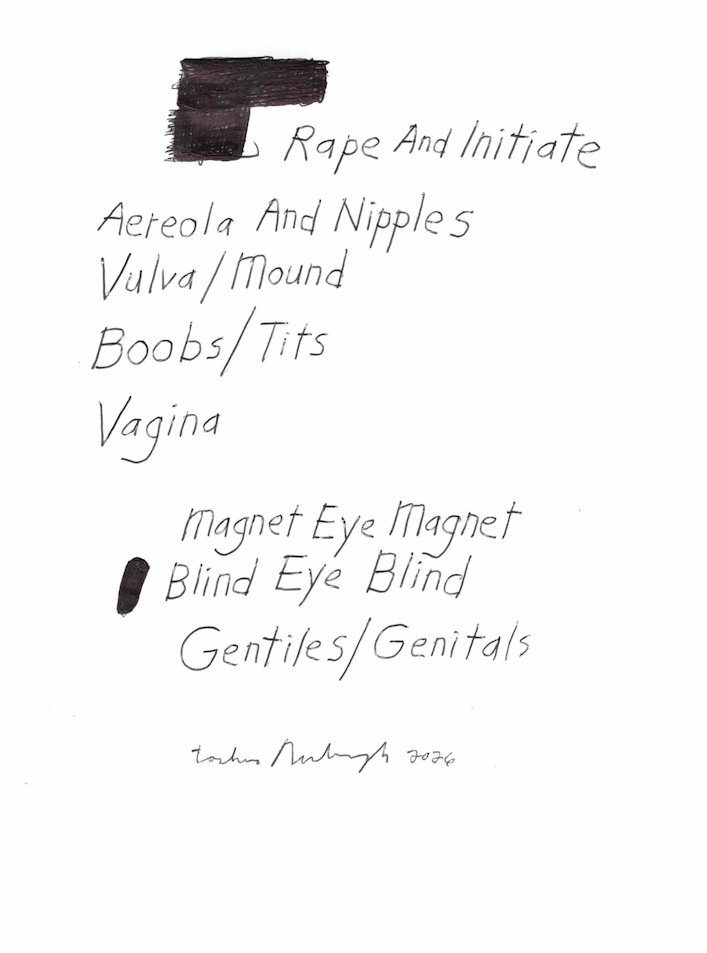 Rape And Initiate
Aereola And Nipples
Vulva/Mound
Boobs/Tits
Vagina
Magnet Eye Magnet
Blind Eye Blind
Gentiles/Genitals
2026